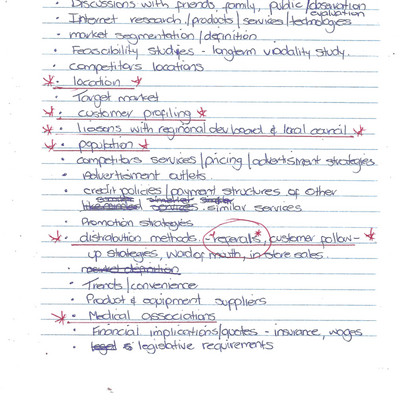 • Discussions with friends, family, public/observation
evaluation
• Internet research/products/services/technologies
• market segmentation/definition
• Feasibility studies - longterm viability study.
• competitors locations
* • location *
• Target market
* • customer profiling *
* • liasons with regional dev board & local council *
* • population *
• competitors services/pricing/advertisment strategies
• Advertisment outlets.
• credit policies/payment structures of other
similar services
• Promotion strategies
* • distribution methods - referrals*, customer follow- *
up strategies, word of mouth, in store sales.
• market
• Trends/convenience
• Product & equipment suppliers
* • Medical associations
• Financial implications/quotes - insurance, wages
• legal legislative requirements